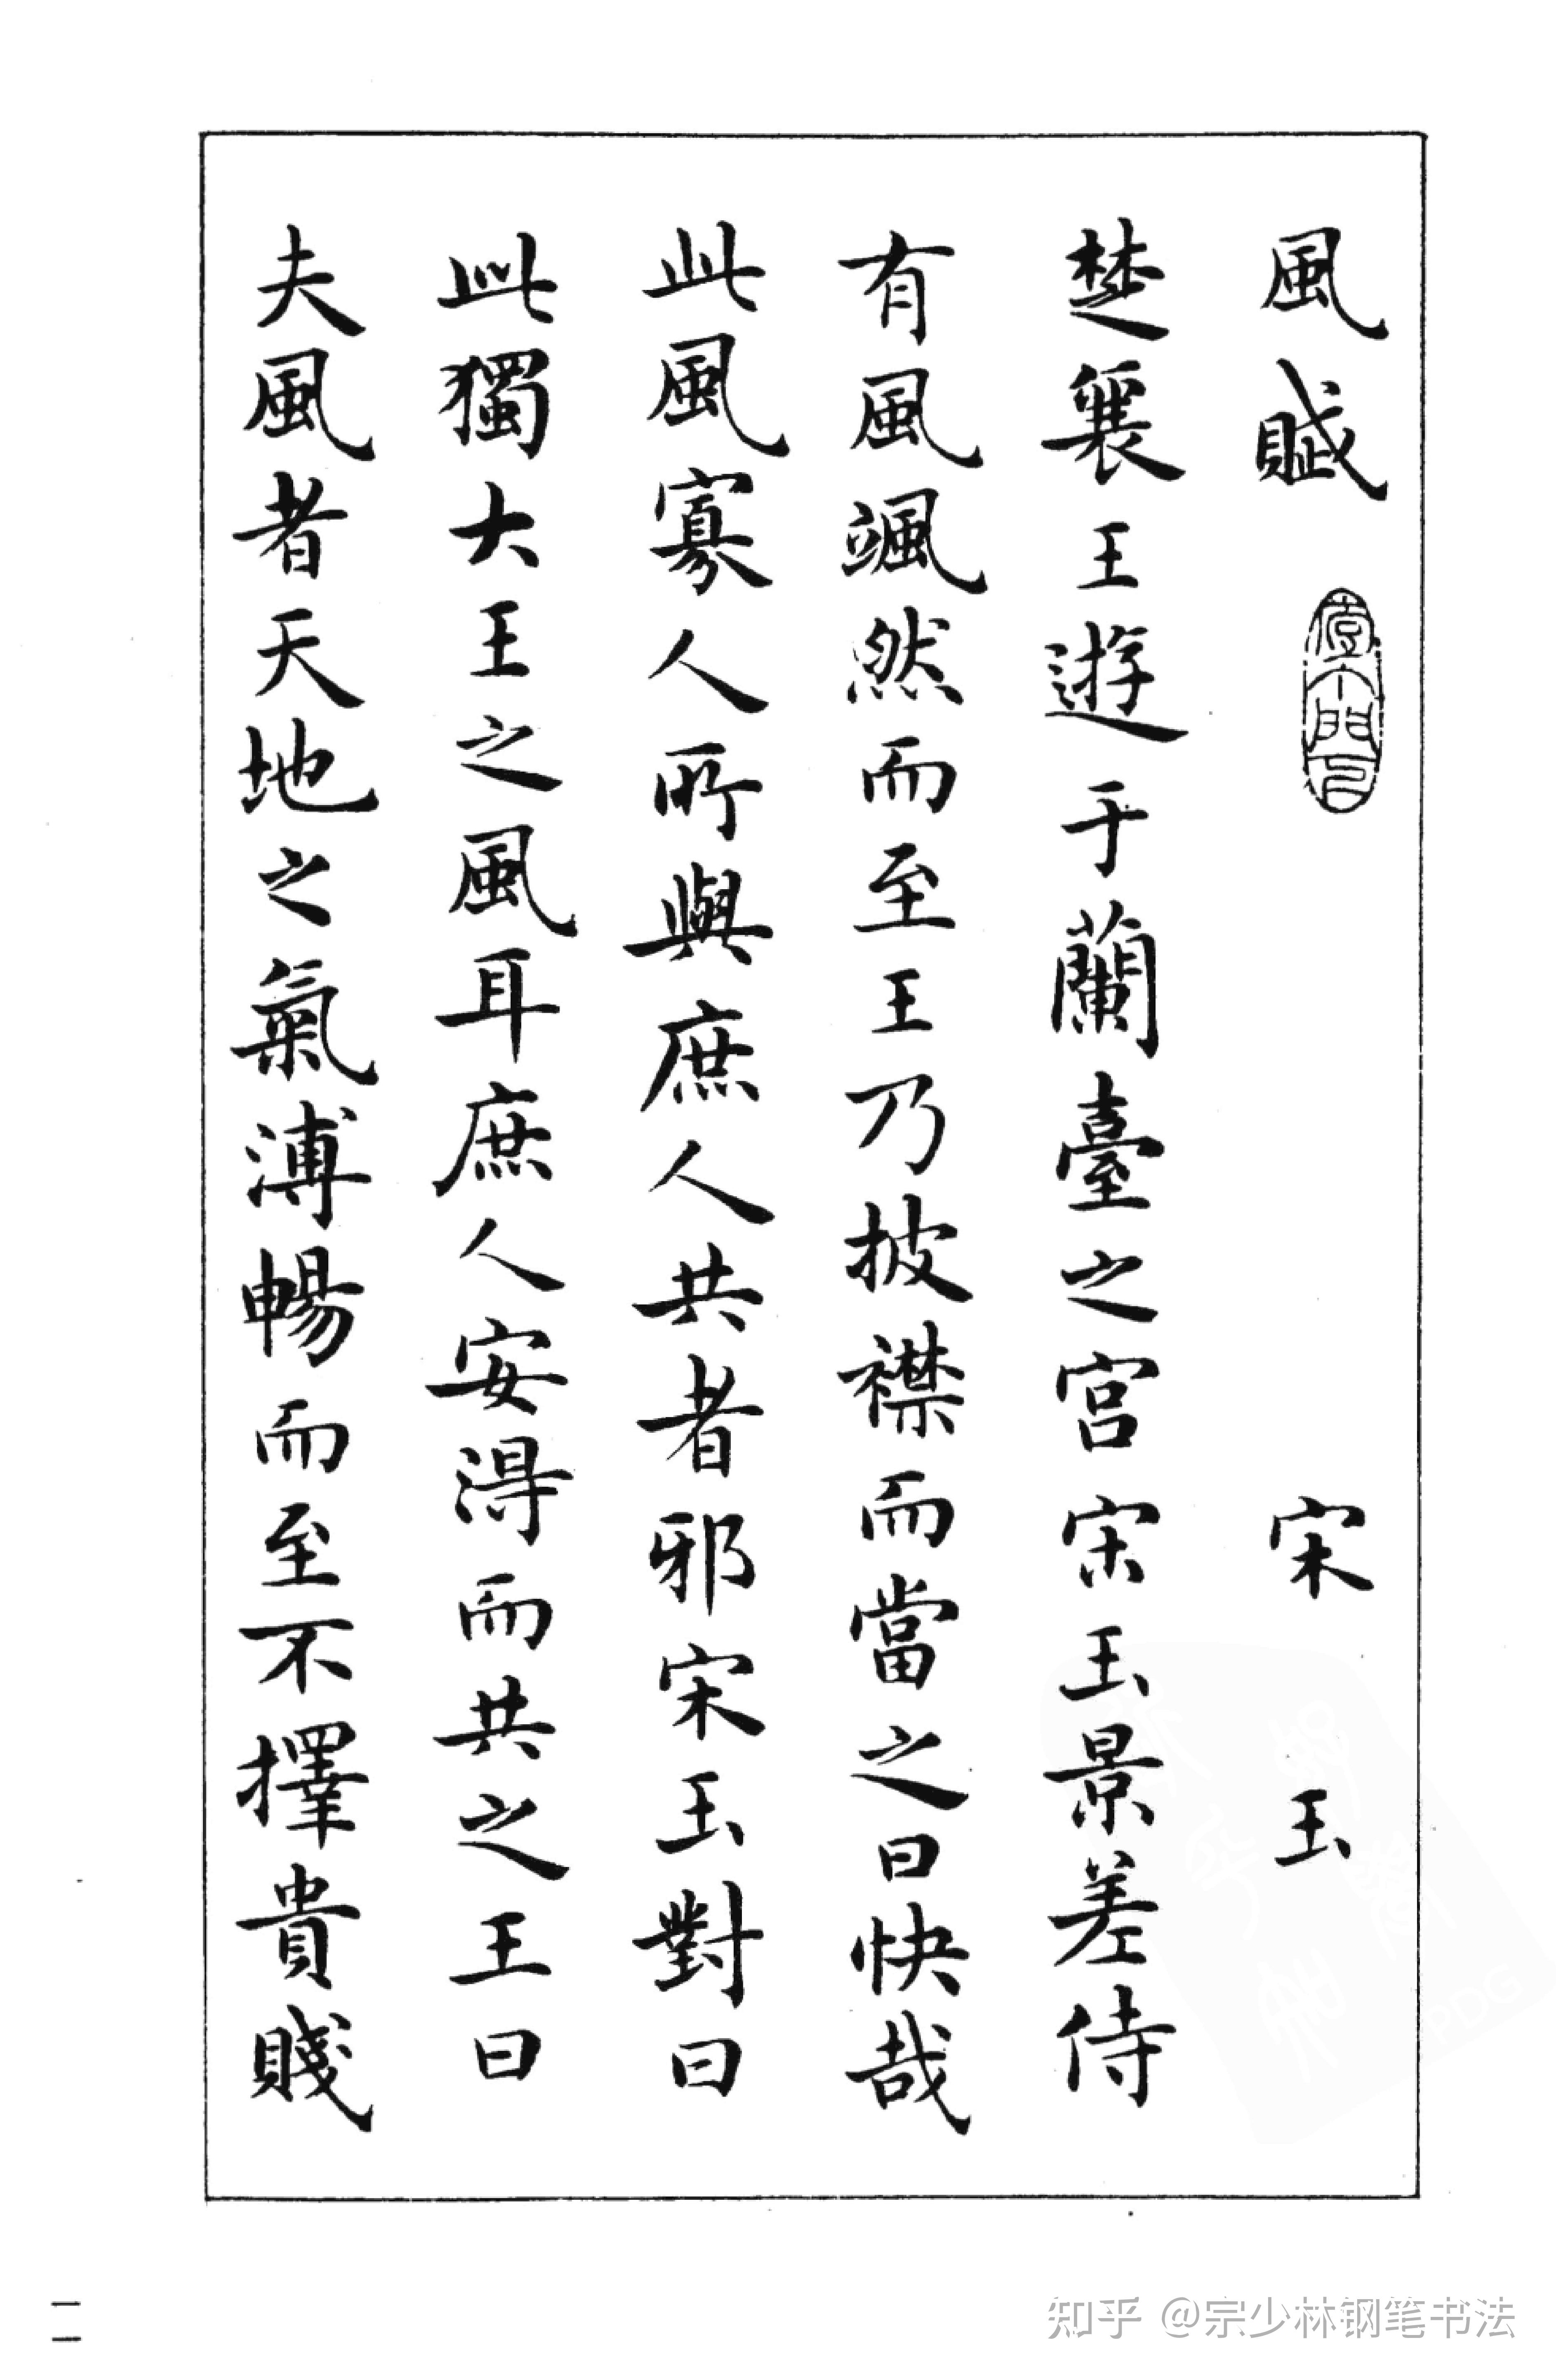 風賦 宋玉
楚襄王遊于蘭臺之宮宋玉景差侍
有風颯然而至王乃披襟而當之曰快哉
此風寡人所與庶人共者邪宋玉對曰
此獨大王之風耳庶人安得而共之王曰
夫風者天地之氣溥暢而至不擇貴賤
一一
知乎 @宗少林钢笔书法